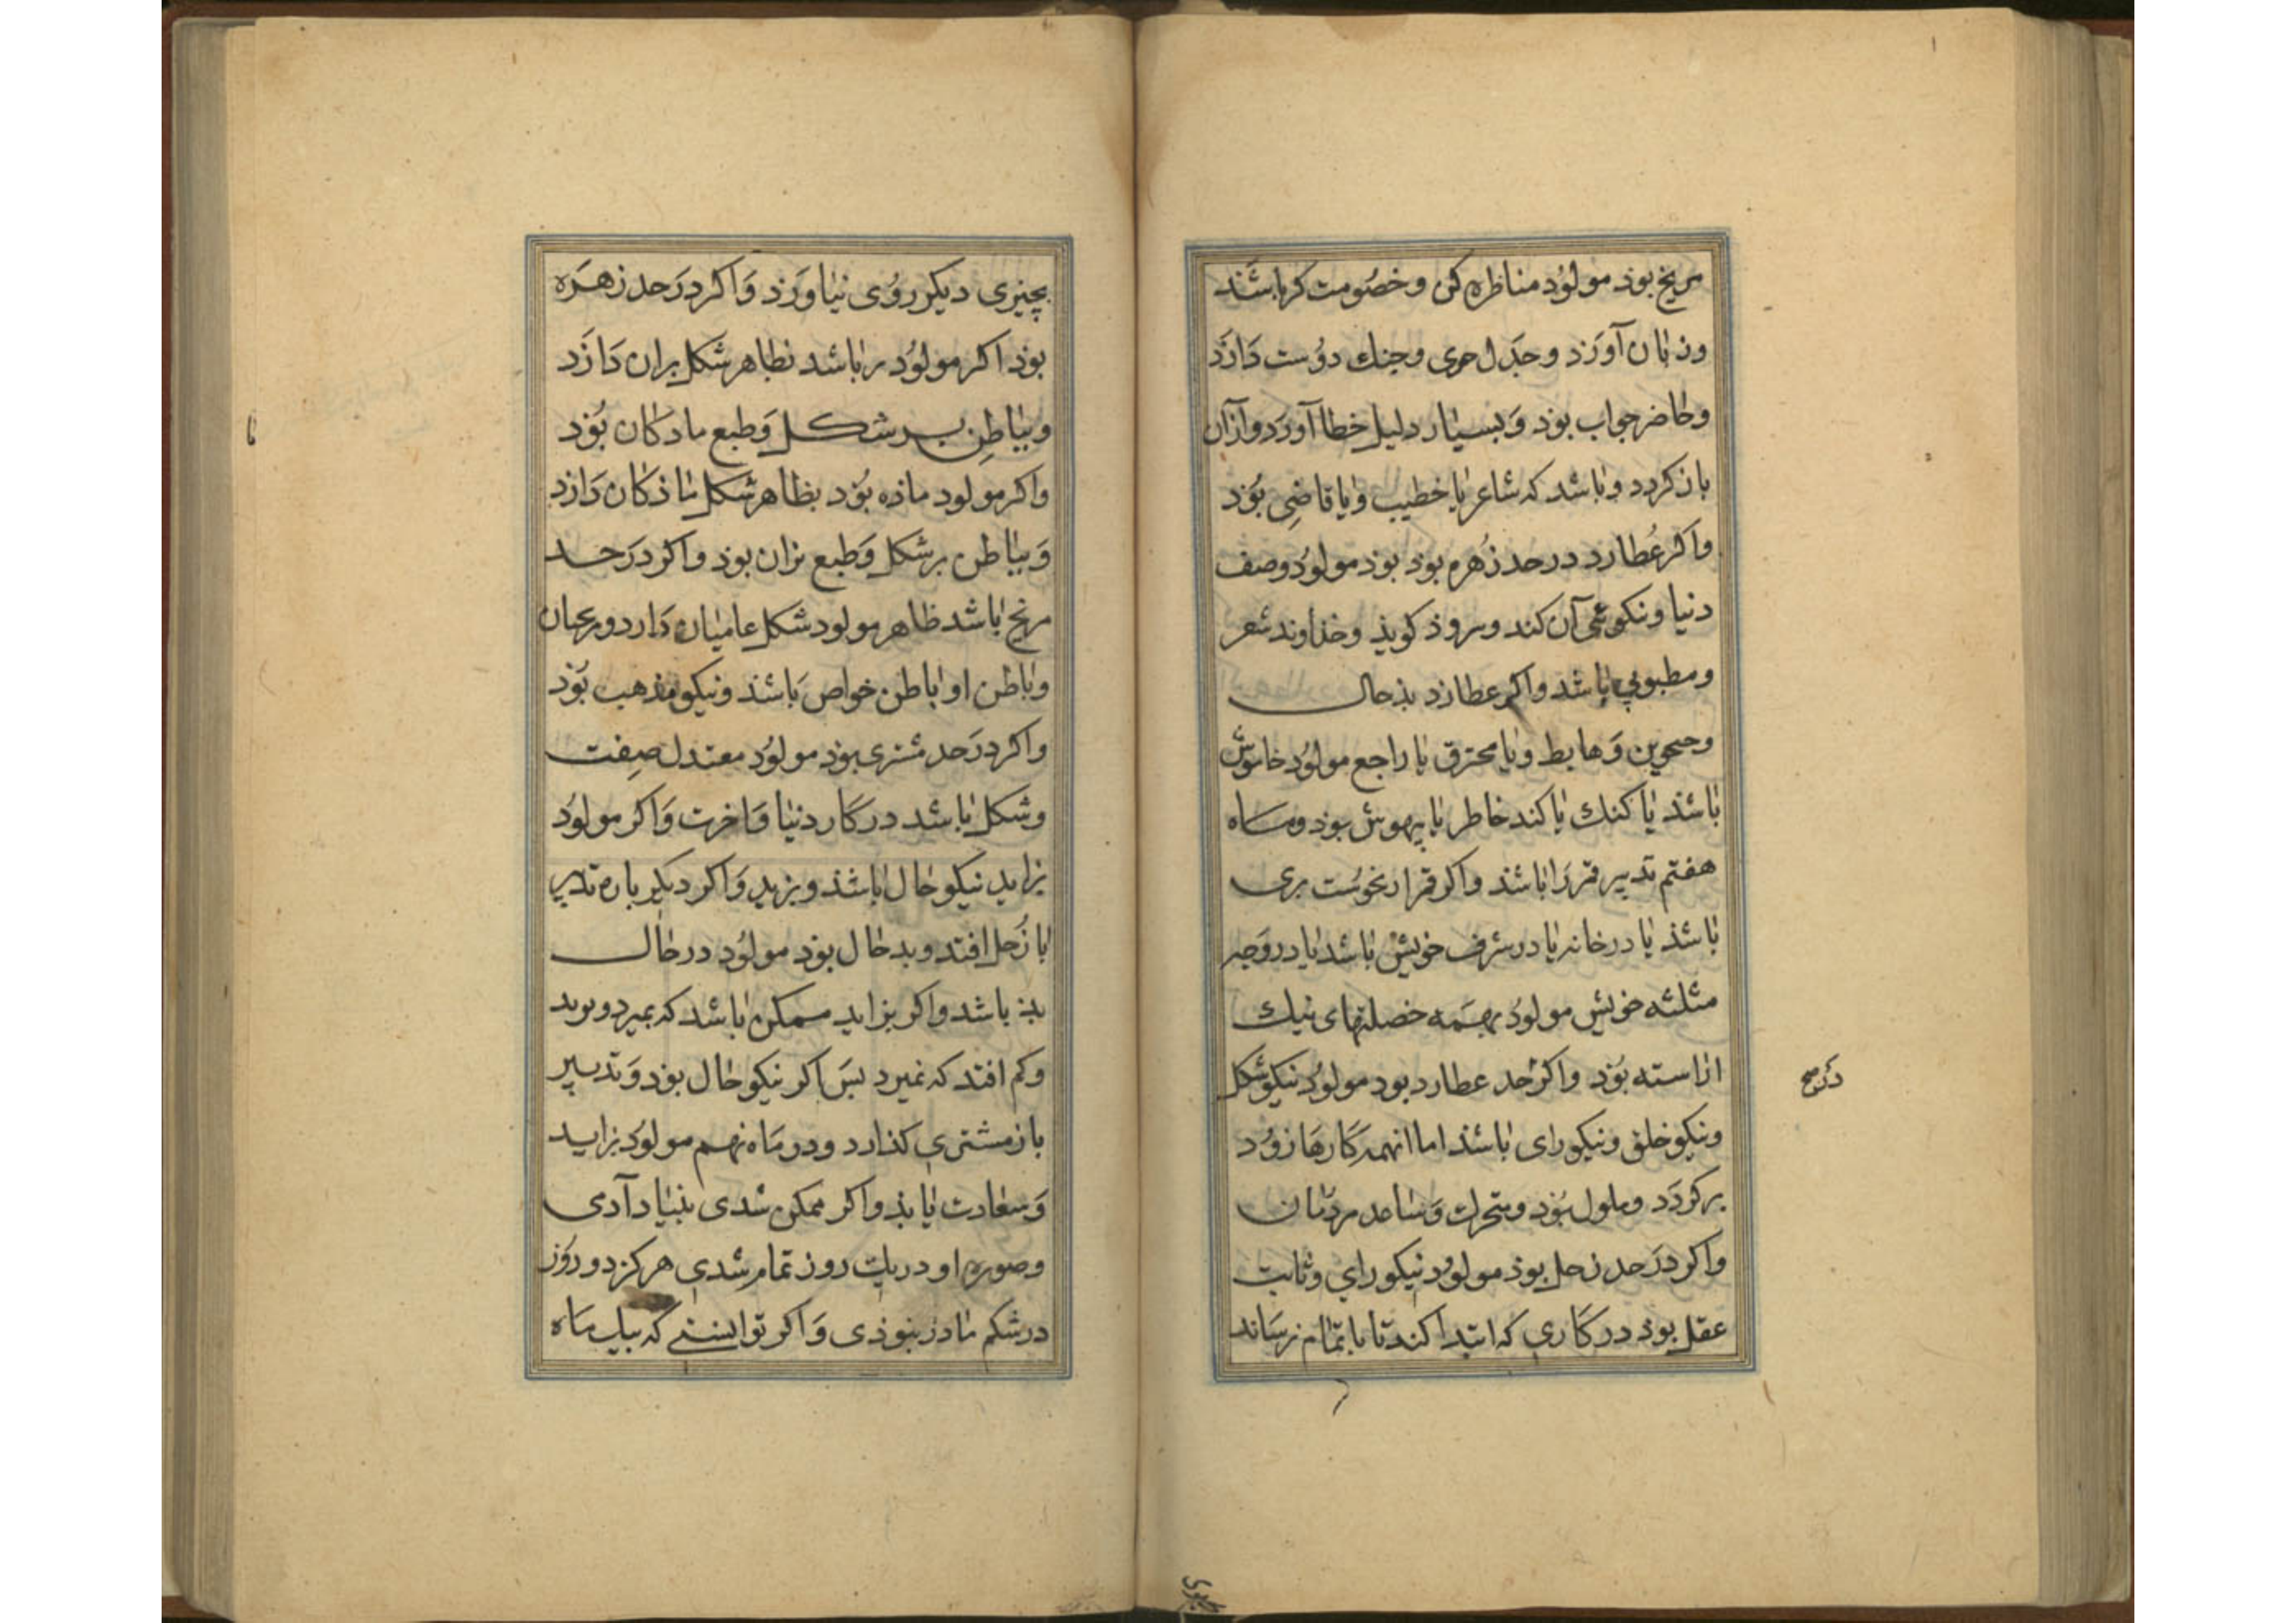 مریخ بوذ مولوُد مناظره کن وخصُومت کر باشَند
وزبان آورَد وجدَل جوی وجنك دوُست دَارَد
وحاضر جواب بوذ وَبسیار دلیل خطا آورَد وازان
باز کردد وباشد که شاعر یا خطیب ویا قاضی بوَد
واکر عُطارد در حد زُهره بوذ بوذ مولوُد وصف
دنیا ونکوئی آن کند وسروذ کویذ وخذاوند شعر
ومطبوبی باشد واکر عطارد بذحال
وحجوبن وَهابط ویا محترق یا راجع مولوُد خاموش
باشذ یا کنك یا کند خاطر یا بیهوش بوذ وماه
هفتم تدبیر قمر رَا باشذ واکر قمر از نحوُست بری
باشذ یا در خانه یا در شرف خویش باشد یا در وَجه
مثلثه خویش مولوُد بهَمه خصلتهای نیك
اراسته بوَد واکر حد عطارد بود مولوُد نیکوشکل
دَر صح
ونیکو خلق ونیکو رای باشذ اما انهمه کَارهَا زوُد
برکردَد وملول بوَد ومتحرك وَساعد مردمان
واکر دَرَحد زحل بوذ مولوُد نیکو رای وثابت
عقل بوذ در کَاری که ابتدا کند تا باتمام نرسَاند
بچیزی دیکر روُی نیاورَد وَاکر دَرَحد زهَرَه
بوذ اکر مولوُد نر باشد بظاهر شکل نران دَارَد
وبباطِن بر شکل وَطبع مادکان بوُد
واکر مولود ماذه بوَد بظاهر شکل ماذکان دَارد
وَبباطن بر شکل وَطبع نران بوذ واکر دَرَحد
مریخ باشد ظاهر مولود شکل عامیان دَارد
وباطن او باطن خواص باشذ ونیکو مذهب بوَد
واکر دَرَحد مشتری بوذ مولوُد معتدل صِفت
وشکل باشد در کَار دنیا وَاخرت وَاکر مولوُد
بزاید نیکو حال باشذ وبزید وَاکر دیکر باره تدبیر
با زُحل افتد وبدحال بوَد مولوُد در حال
بذ باشد واکر بزاید ممکن باشد که بمیرد
وکم افتد که نمیرد بسَ اکر نیکو حال بوَد وَتدبیر
باز مشتری کذارد ودر مَاه نهم مولوُد بزاید
وَسعادت یابذ واکر ممکن شدی بنیاد آدمی
وصوره او در یك روز تمام شدی هرکز دو روَز
در شکم مادر نبوذی وَاکر توانستی که بیك مَاه